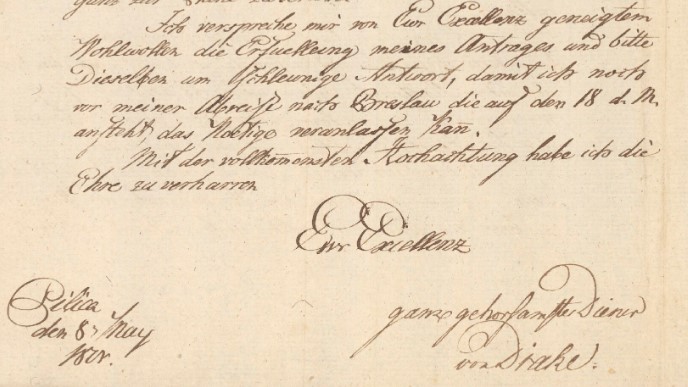 Ich verspreche mir von Eur Excellenz geneigtem
Wohlwollen die Erfuelleung meines Antrages und bitte
Dieselben um schleunige Antwort, damit ich noch
vor meiner Abreise nach Breslau die auf den 18 d. M.
ansteht, das Noetige veranlassen kan̄.
Mit der vollkom̄ensten Hochachtung habe ich die
Ehre zu verharren
Eur Excellenz
Pilica
den 8 May
ganz gehorsamster Diener
von Drake.